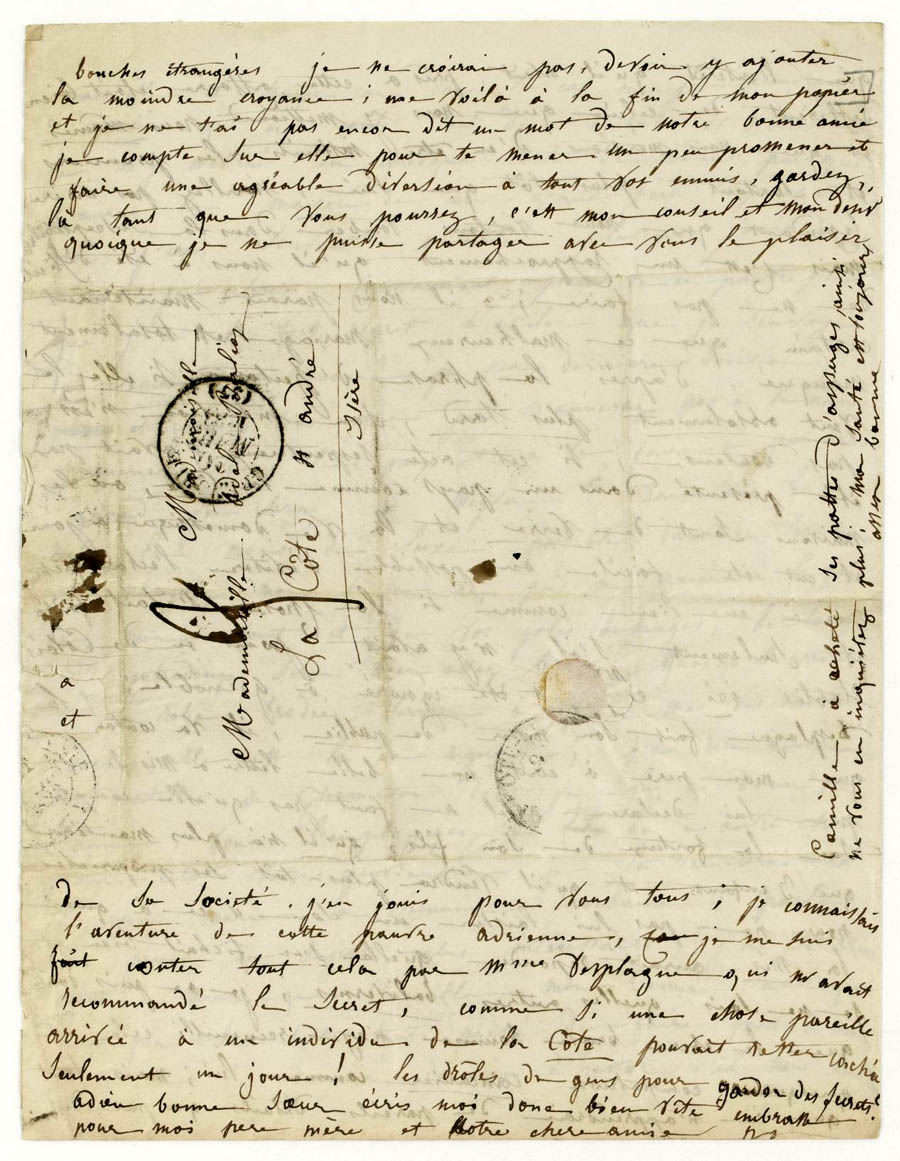 bouches étrangéres je ne croirai pas, devoir y ajouter
la moindre croyance ; me voilà à la fin de mon papier
et je ne t'ai pas encor dit un mot de notre bonne amie
je compte sur elle pour te mener un peu promener et
faire une agréable diversion à tout vos ennuis, gardez,
la tant que vous pourrez, c'est mon conseil et mon désir
quoique je ne puisse partager avec vous le plaisir
Mademoiselle
Mademoiselle
La Côte st andré
Isère
Camille a acheté ses pattes d'asperges ainsi
ne vous en inquiétez plus, ma santé est toujours
assez bonne
a
et
de sa société. j'en jouis pour vous tous ; je connaissais
l'aventure de cette pauvre adrienne, je me suis
fait conter tout cela par Mme Desplagne qui m'avait
recommandé le secret, comme si une chose pareille
arrivée à un individu de la Côte pouvait rester cachée
seulement un jour ! les drôles de gens pour garder des secrets !
adieu bonne sœur écris moi donc bien vite embrasse
pour moi pere mère et notre chere amie